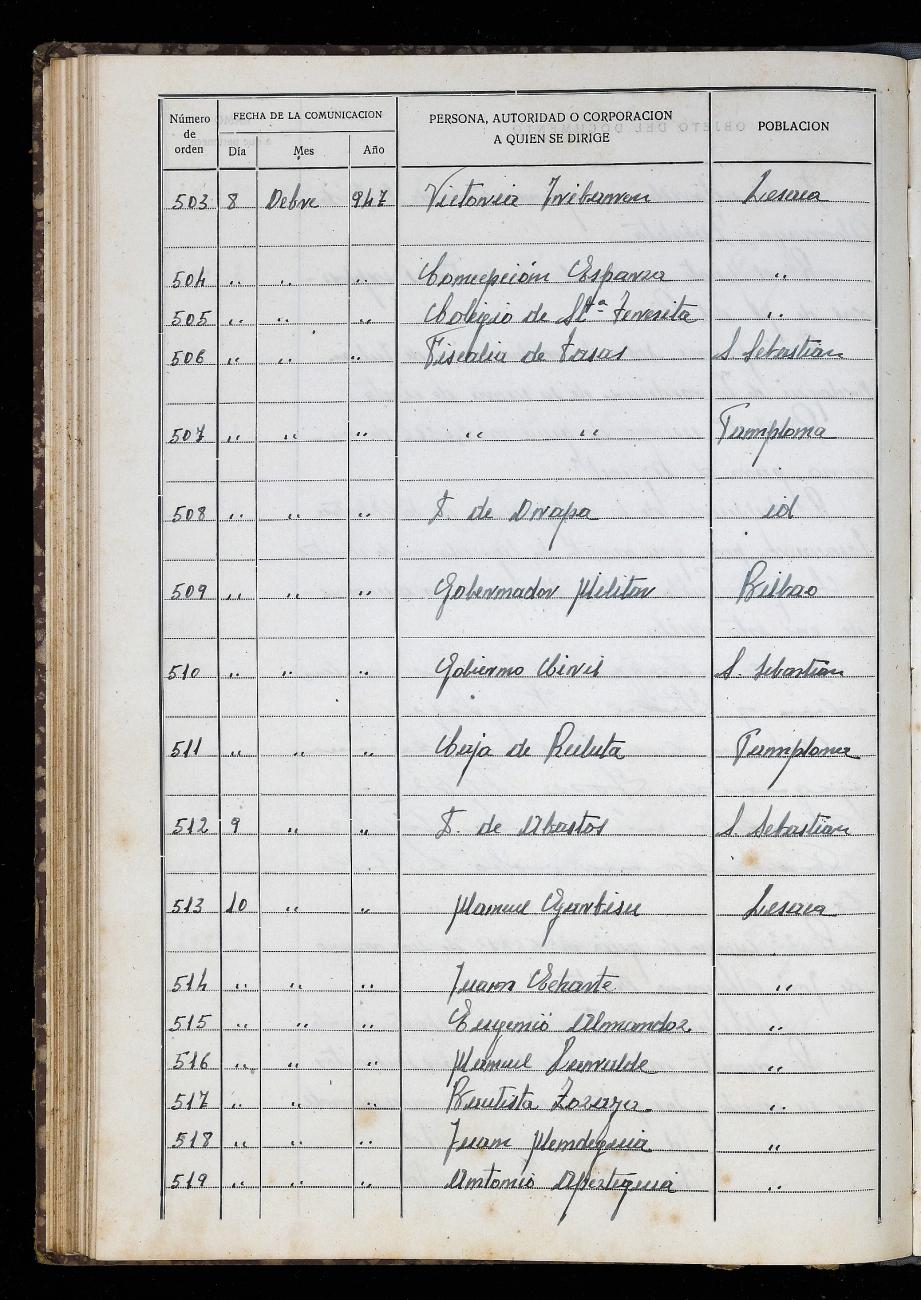 Número de orden FECHA DE LA COMUNICACION PERSONA, AUTORIDAD O CORPORACION A QUIEN SE DIRIGE POBLACION
Día Mes Año
503 8 Debre 947 Victoria Iribarren Lesaca
504 " " " Concepción Esparza "
505 " " " Colegio de Stª Teresita "
506 " " " Fiscalia de Tasas S Sebastian
507 " " " " " Pamplona
508 " " " I. de Orapa id
509 " " " Gobernador Militar Bilbao
510 " " " Gobierno Civil S. Sebastian
511 " " " Caja de Recluta Pamplona
512 9 " " de Abastos S. Sebastian
513 10 " " Manuel Lesaca
514 " " " Juan Echarte "
515 " " " Eugenio Almandoz "
516 " " " Manuel "
517 " " " Bautista "
518 " " " Juan Mendeguia "
519 " " " Antonio Apesteguia "